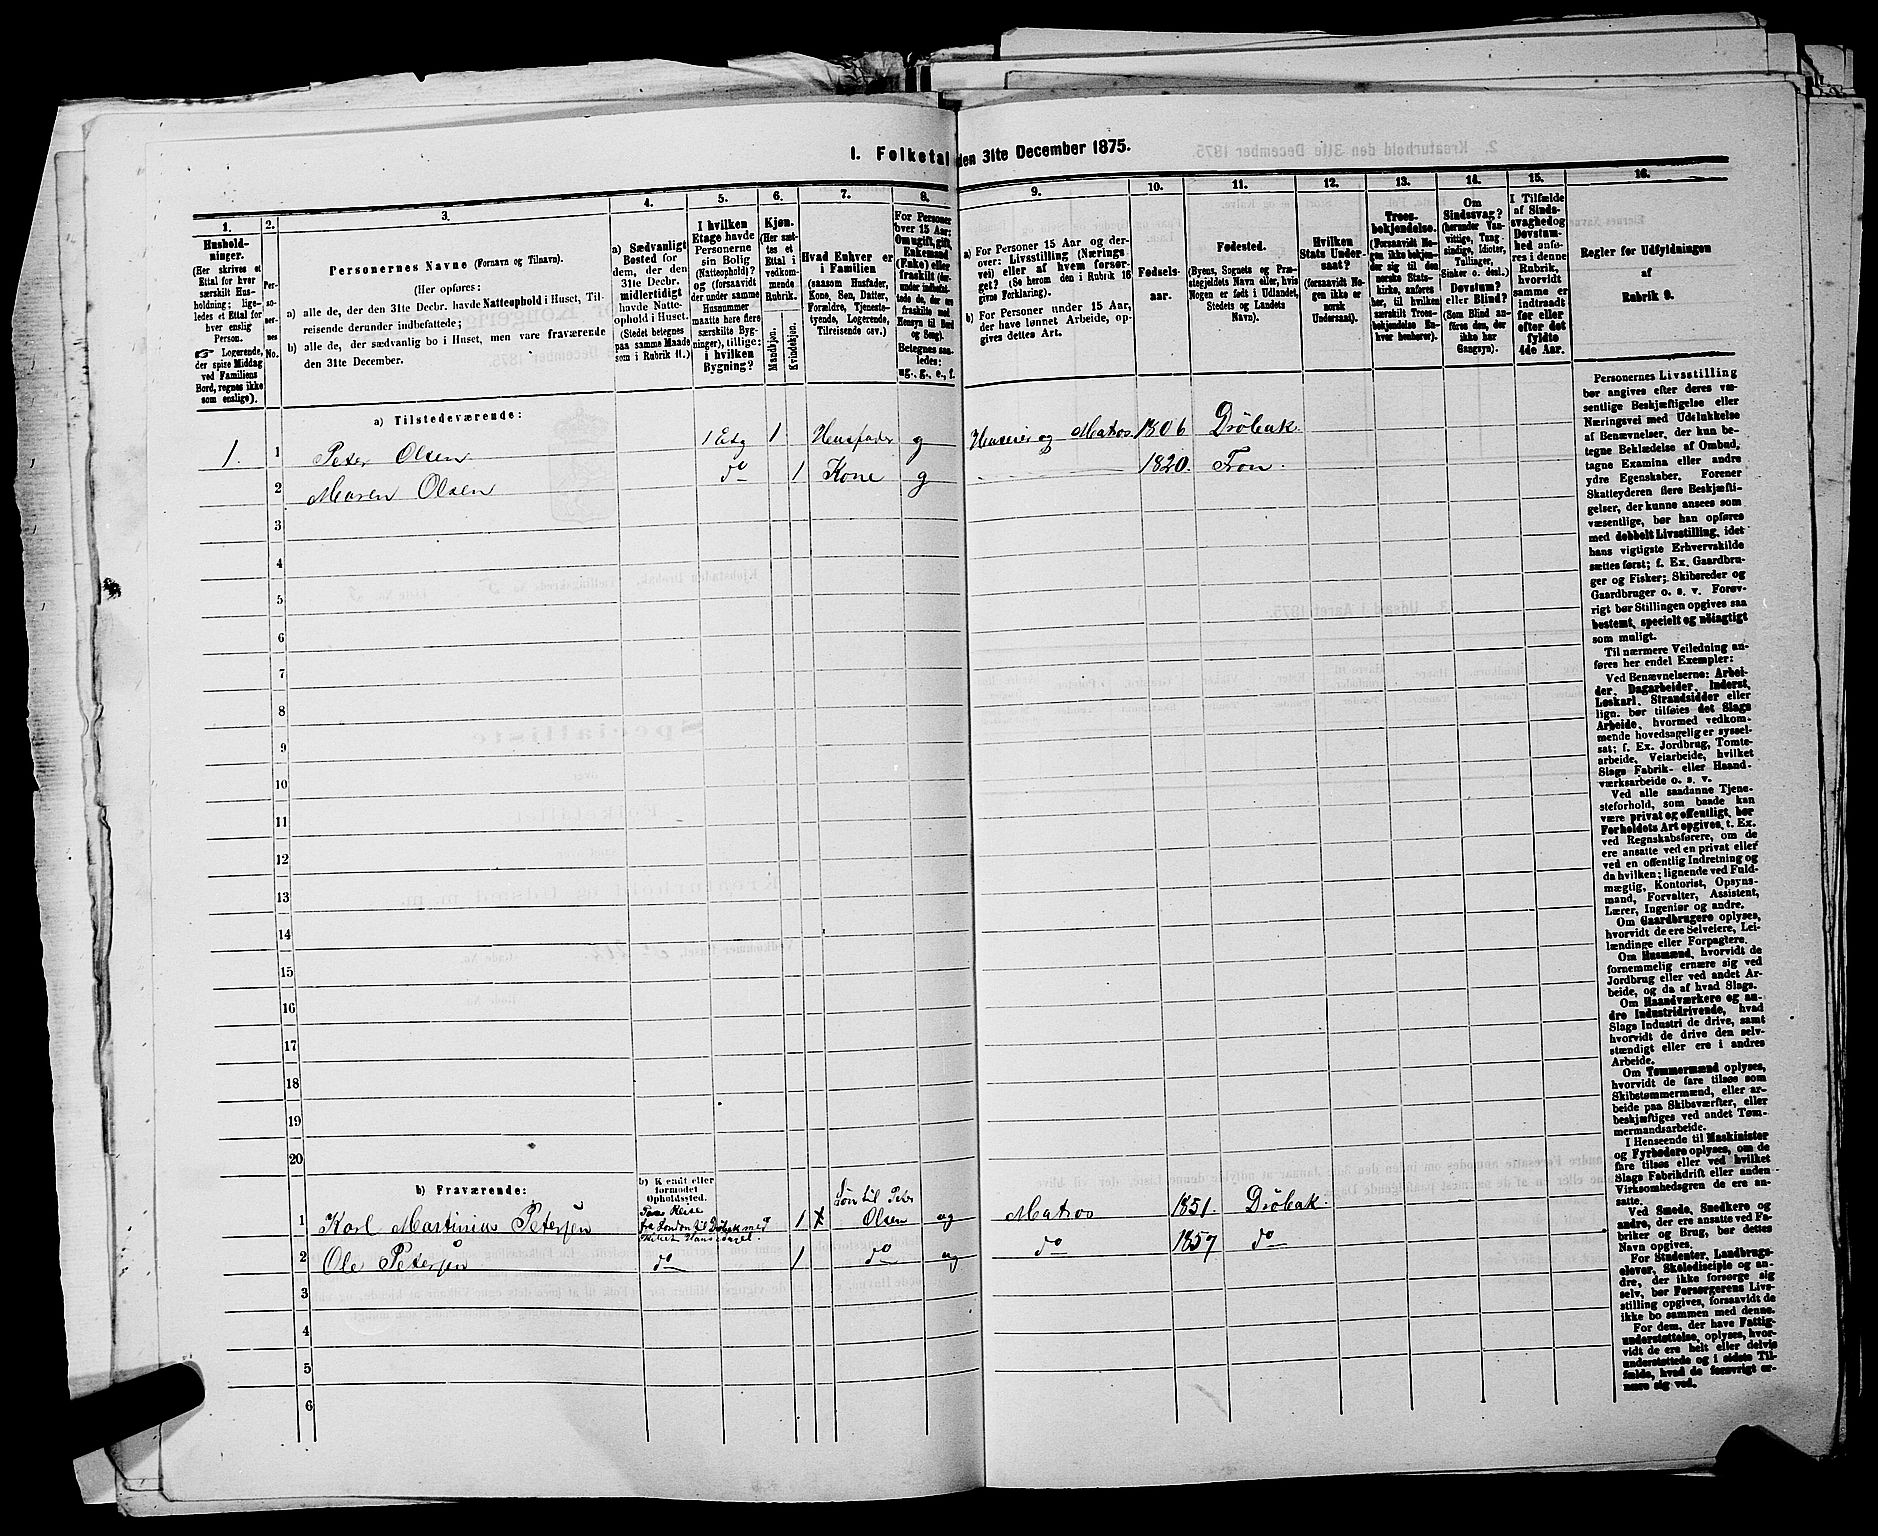 1. Folketal den 31te December 1875.
1.
Hushold-
ninger.
(Her skrives et
Ettal for hver
særskilt Hus-
holdning; lige-
ledes et Ettal for
hver enslig
Person.
☞ Logerende,
der spise Middag
ved Familiens
Bord, regnes ikke
som enslige).
2.
Per-
so-
ner-
nes
No.
3.
Personernes Navne (Fornavn og Tilnavn).
(Her opføres:
a) alle de, der den 31te Decbr. havde Natteophold i Huset, Til-
reisende derunder indbefattede;
b) alle de, der sædvanlig bo i Huset, men vare fraværende
den 31te December.
4.
a) Sædvanligt
Bosted for
dem, der den
31te Decbr.
midlertidigt
havde Natte-
ophold i Huset.
(Stedet betegnes
paa samme Maade
som i Rubrik 11.)
5.
I hvilken
Etage havde
Personerne
sin Bolig
(Natteophold)?
og (forsaavidt
der under samme
Husnummer
maatte høre flere
særskilte Byg-
ninger), tillige:
i hvilken
Bygning?
6.
Kjøn.
(Her sæt-
tes et
Ettal i
vedkom-
mende
Rubrik.
Mandkjøn.
Kvindekjøn.
7.
Hvad Enhver er
i Familien
(saasom Husfader,
Kone, Søn, Datter,
Forældre, Tjeneste-
tyende, Logerende,
Tilreisende osv.)
8.
For Personer
over 15 Aar:
Om ugift, gift,
Enkemand
(Enke) eller
fraskilt (her-
under indbefat-
tede de, der ere
fraskilte med
Hensyn til Bord
og Seng).
Betegnes saa-
ledes:
ug., g., e., f.
9.
a) For Personer 15 Aar og der-
over: Livsstilling (Nærings-
vei) eller af hvem forsør-
get? (Se herom den i Rubrik 16
givne Forklaring).
b) For Personer under 15 Aar,
der have lønnet Arbeide, op-
gives dettes Art.
10.
Fødsels-
aar.
11.
Fødested.
(Byens, Sognets og Præ-
stegjeldets Navn eller, hvis
Nogen er født i Udlandet,
Stedets og Landets
Navn).
12.
Hvilken
Stats Under-
saat?
(forsaavidt No-
gen ikke er
norsk
Undersaat).
13.
Troes-
bekjendelse.
(Forsaavidt No-
gen ikke bekjen-
der sig til den
norske Stats-
kirke, anføres
her, til hvilken
særskilt Troes-
bekjendelse En-
hver henhører).
14.
Om
Sindssvag?
(herunder Van-
vittige, Tung-
sindige, Idioter,
Tullinger,
Sinker o. desl.)
Døvstum?
eller Blind?
(Som Blind an-
føres den, der
ikke har
Gangsyn).
15.
I Tilfælde
af Sinds-
svaghed og
Døvstum-
hed anfø-
res i denne
Rubrik,
hvorvidt
samme er
indtraadt
før eller
efter det
fyldte
4de Aar.
16.
Regler for Udfyldningen
af
Rubrik 9.
a) Tilstedeværende:
1. 1 Peter Olsen 1 Etg 1 Husfader g Huseier og Matros 1806 Drøbak
2 Maren Olsen do 1 Kone g 1820 Fron
3
4
5
6
7
8
9
10
11
12
13
14
15
16
17
18
19
20
b) Fraværende:
b) Kjendt eller
formodet
Opholdssted.
1 Karl Martinius Petersen Paa Reise
fra London til Drøbak med
1 Søn til Peter
Olsen ug Matros 1851 Drøbak
2 Ole Petersen do 1 do ug do 1857 do
3
4
5
6
Personernes Livsstilling
bør angives efter deres væ-
sentlige Beskjæftigelse eller
Næringsvei med Udelukkelse
af Benævnelser, der kun be-
tegne Beklædelse af Ombud,
tagne Examina eller andre
ydre Egenskaber. Forener
Skatteyderen flere Beskjæfti-
gelser, der kunne ansees som
væsentlige, bør han opføres
med dobbelt Livsstilling, idet
hans vigtigste Erhvervskilde
sættes først; f. Ex. Gaardbru-
ger og Fisker; Skibsreder og
Gaardbruger o. s. v. Forøv-
rigt bør Stillingen opgives saa
bestemt, specielt og nøiagtigt
som muligt.
Til nærmere Veiledning an-
føres her endel Exempler:
Ved Benævnelserne: Arbei-
der, Dagarbeider, Inderst,
Løskarl, Strandsidder eller
lign. bør tilføies det Slags
Arbeide, hvormed vedkom-
mende hovedsagelig er syssel-
sat; f. Ex. Jordbrug, Tomte-
arbeide, Veiarbeide, hvilket
Slags Fabrik- eller Haand-
værksarbeide o. s. v.
Ved alle saadanne Tjene-
steforhold, som baade kan
være privat og offentligt, bør
Forholdets Art opgives, t. Ex.
ved Regnskabsførere, om de
ere ansatte ved en privat eller
ved en offentlig Indretning og
da hvilken; lignende ved Fuld-
mægtig, Kontorist, Opsyns-
mand, Forvalter, Assistent,
Lærer, Ingeniør og andre.
Om Gaardbrugere oplyses,
hvorvidt de ere Selveiere, Lei-
lændinge eller Forpagtere.
Om Husmænd, hvorvidt de
fornemmelig ernære sig ved
Jordbrug eller ved andet Ar-
beide, og da af hvad Slags.
Om Haandværkere og an-
dre Industridrivende, hvad
Slags Industri de drive, samt
hvorvidt de drive den selv-
stændigt eller ere i andres
Arbeide.
Om Tømmermænd oplyses,
hvorvidt de fare tilsøs som
Skibstømmermænd, eller ar-
beide paa Skibsværfter, eller
beskjæftiges ved andet Tøm-
mermandsarbeide.
I Henseende til Maskinister
og Fyrbødere oplyses, om de
fare tilsøs eller ved hvilket
Slags Fabrikdrift eller anden
Virksomhedsgren de ere an-
satte.
Ved Smede, Snedkere og
andre, der ere ansatte ved Fa-
briker og Brug, bør dettes
Navn opgives.
For Studenter, Landbrugs-
elever, Skoledisciple og an-
dre, der ikke forsørge sig
selv, bør Forsørgerens Livs-
stilling opgives, forsaavidt de
ikke bo sammen med denne.
For dem, der have Fattig-
understøttelse, oplyses, hvor-
vidt de ere helt eller delvis
understøttede og i sidste Til-
fælde, hvad de forøvrigt er-
nære sig ved.